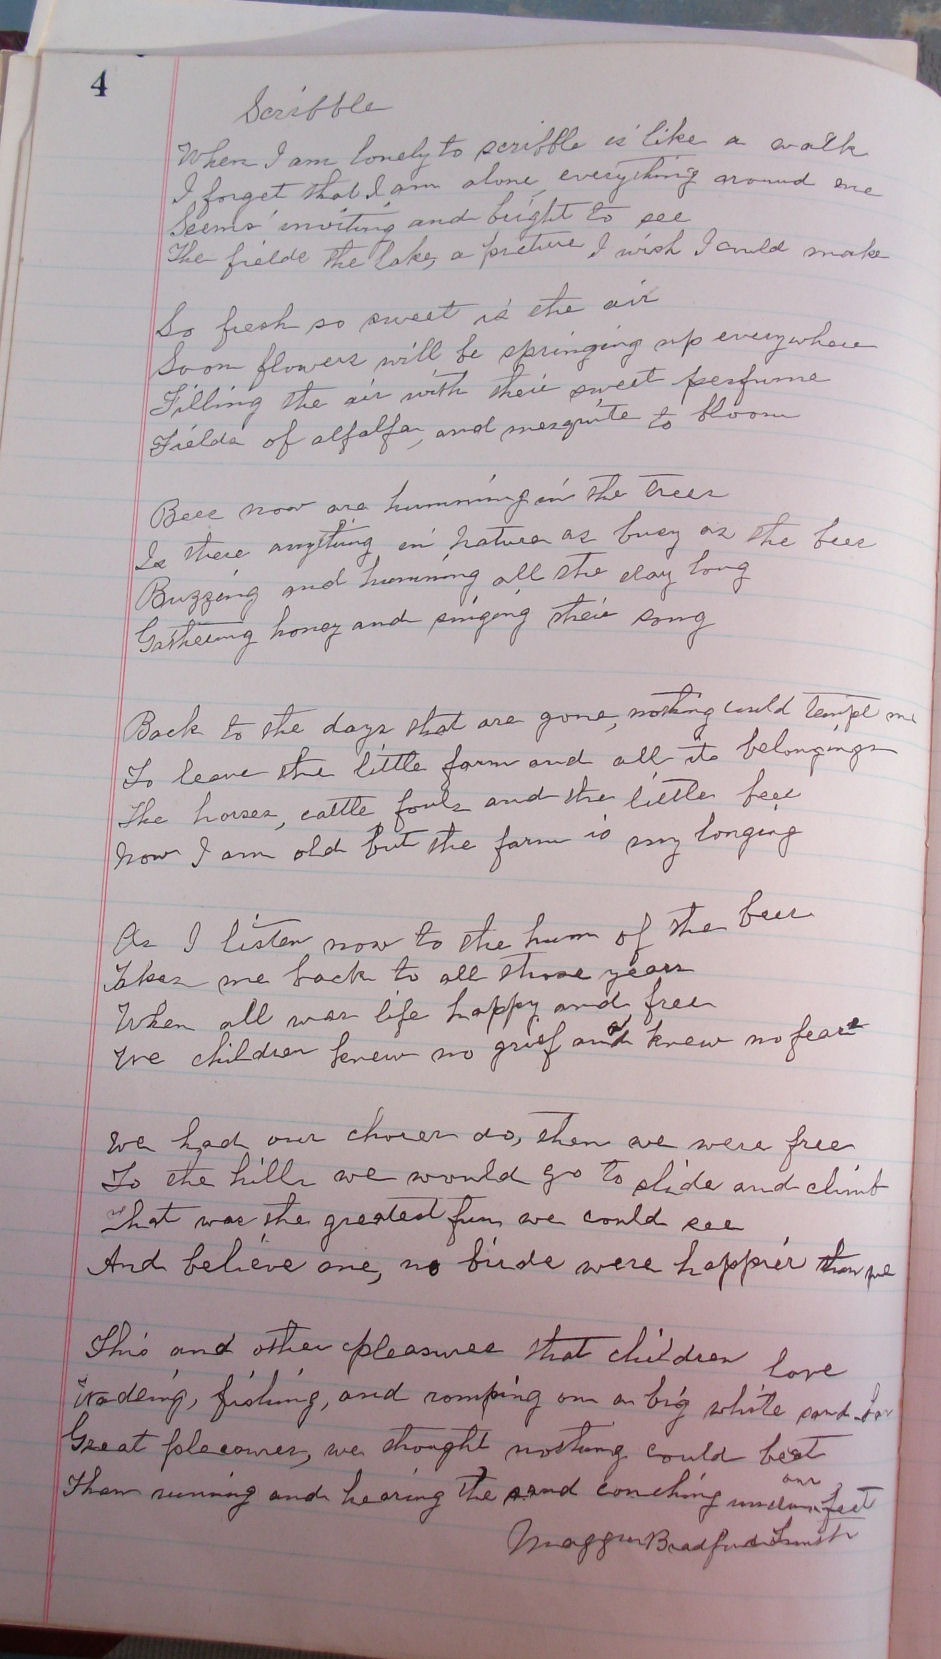 4
Scribble
When I am lonely to scribble is like a walk
I forget that I am alone, everything around me
Seems inviting and bright to see
The fields the lake, a picture I wish I could make
So fresh so sweet is the air
Soon flowers will be springing up everywhere
Filling the air with their sweet perfume
Fields of alfalfa, and mesquite to bloom
Bees now are humming in the trees
Is there anything in Nature as busy as the bees
Buzzing and humming all the day long
Gathering honey and singing their song
Back to the days that are gone, nothing could tempt me
To leave the little farm and all its belongings
The horses, cattle, fouls and the little bees
Now I am old but the farm is my longing
As I listen now to the hum of the bees
Takes me back to all those years
When all was life happy and free
We children knew no grief and knew no fears
We had our chores do, then we were free
To the hills we would go to slide and climb
That was the greatest fun we could see
And believe me, no birds were happier than we
This and other pleasures that children love
Wadeing, fishing, and romping on a big white sand bar
Great pleasures, we thought nothing could beat
Than running and hearing the sand conching under our feet
Bradford